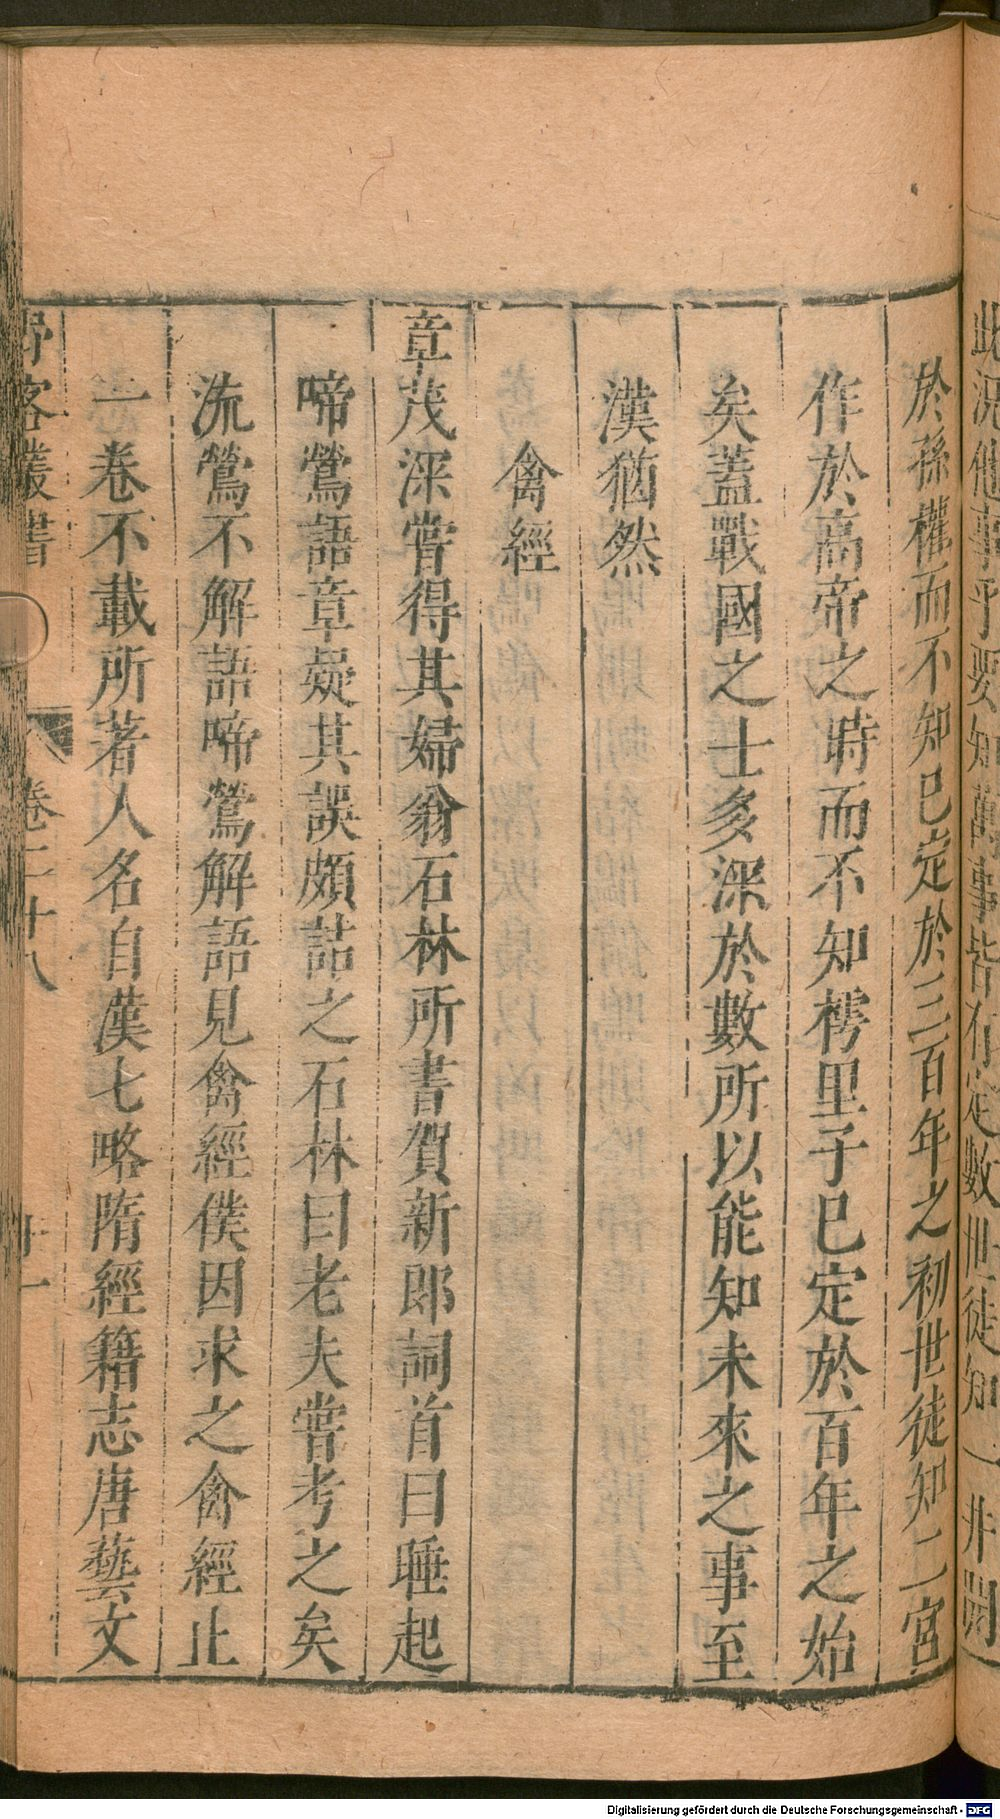 此況他事乎要知萬事皆有定數世徒知一井開
於孫權而不知已定於三百年之初世徒知二宮
作於高帝之時而不知樗里子已定於百年之始
矣蓋戰國之士多深於數所以能知未來之事至
漢猶然
禽經
章茂深嘗得其婦翁石林所書賀新郎詞首曰睡起
啼鶯語章疑其誤頗詰之石林曰老夫嘗考之矣
流鶯不解語啼鶯解語見禽經僕因求之禽經止
一卷不載所著人名自漢七略隋經籍志唐藝文
野客叢書
卷二十八
十一
Digitalisierung gefördert durch die Deutsche Forschungsgemeinschaft - DFG